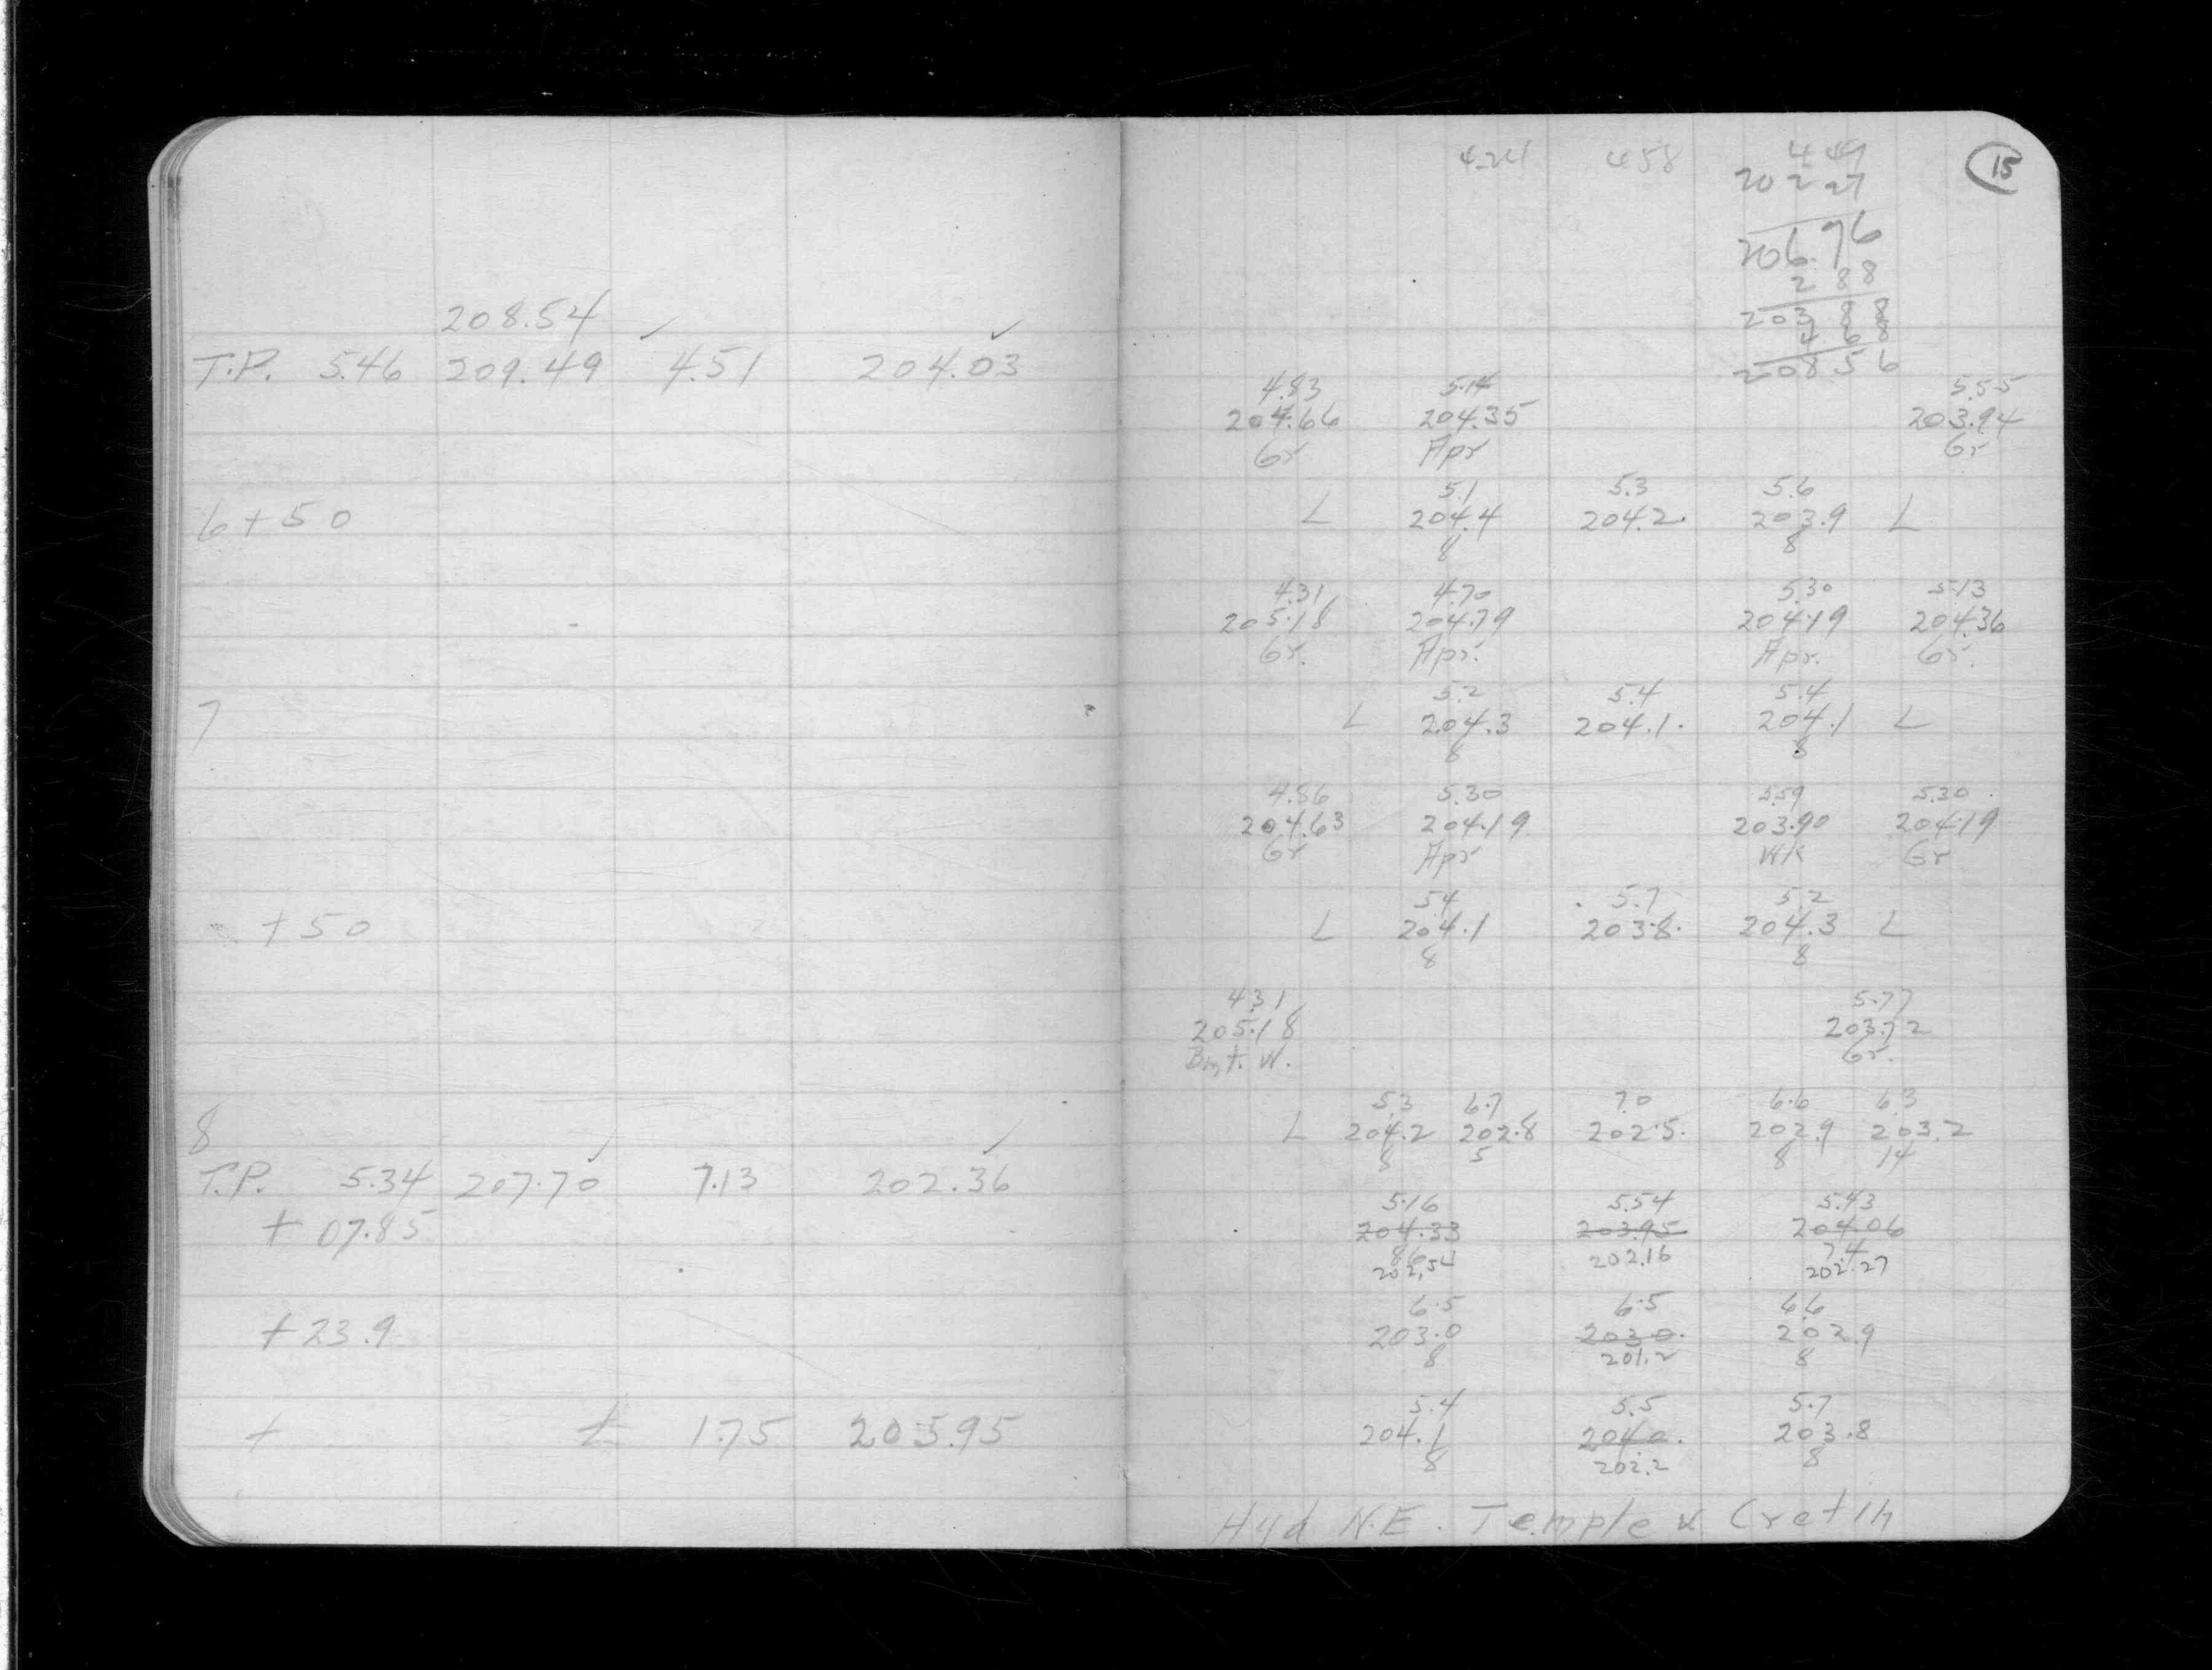 208.54
T.P. 5.46 209.49 4.51 204.03
6+50
7
+50
8
T.P. 5.34 207.70 7.13 202.36
+07.85
+23.9
+ 1.75 205.95
15
4.24 4.58 4.49
202 27
206.76
2 88
203 88
4 68
208 56
4.83 5.14 5.55
204.66 204.35 203.94
Gr Apr Gr
5.1 5.3 5.6
L 204.4 204.2 203.9 L
8 8
4.31 4.70 5.30 5.13
205.18 204.79 204.19 204.36
Gr. Apr. Apr. Gr.
5.2 5.4 5.4
L 204.3 204.1 204.1 L
8 8
4.86 5.30 5.59 5.30
204.63 204.19 203.90 204.19
Gr Apr WK Gr
5.4 5.7 5.2
L 204.1 203.8 204.3 L
8 8
4.31 5.77
205.18 203.72
Bmt. W. Gr.
5.3 6.7 7.0 6.6 6.3
L 204.2 202.8 202.5 202.9 203.2
8 5 8 14
5.16 5.54 5.43
204.33 203.95 204.06
8.6 7.4
202.54 202.16 202.27
6.5 6.5 6.6
203.0 203.0 202.9
8 201.2 8
5.4 5.5 5.7
204.1 204.0 203.8
8 202.2 8
Hyd N.E. Temple & Cretin